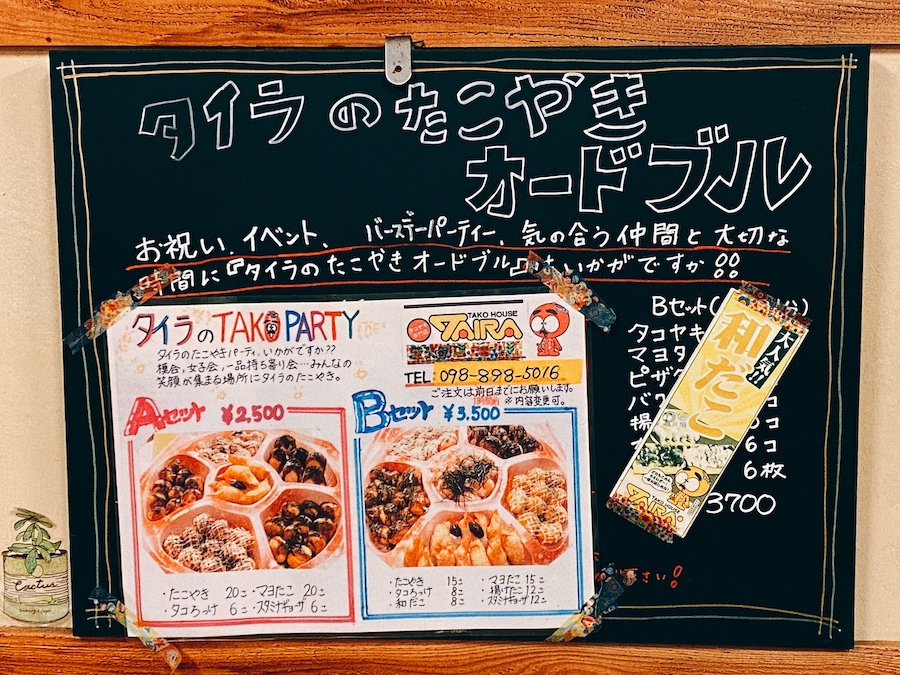 タイラのたこやき
オードブル
お祝い、イベント、バースデーパーティー、気の合う仲間と大切な
時間に『タイラのたこやきオードブル』はいかがですか!!
タイラのTAKO PARTY
タイラのたこやきパーティ、いかがですか??
模合、女子会、一品持ち寄り会…みんなの
笑顔が集まる場所にタイラのたこやき。
TAKO HOUSE
TAIRA
TEL:098-898-5016
ご注文は前日までにお願いします。
※内容変更可。
Aセット ¥2,500
・たこやき 20コ ・マヨたこ 20コ
・タコろっけ 6コ ・スタミナギョーザ 6コ
Bセット ¥3,500
・たこやき 15コ ・マヨたこ 15コ
・タコろっけ 8コ ・揚げたこ 12コ
・和だこ 8コ ・スタミナギョーザ 12コ
Bセット(
分)
タコヤキ
マヨタ
ピザタ
バ
コ
揚
コ
6コ
6枚
3700
大人気!!
和だこ
TAIRA
さい!
Cactus